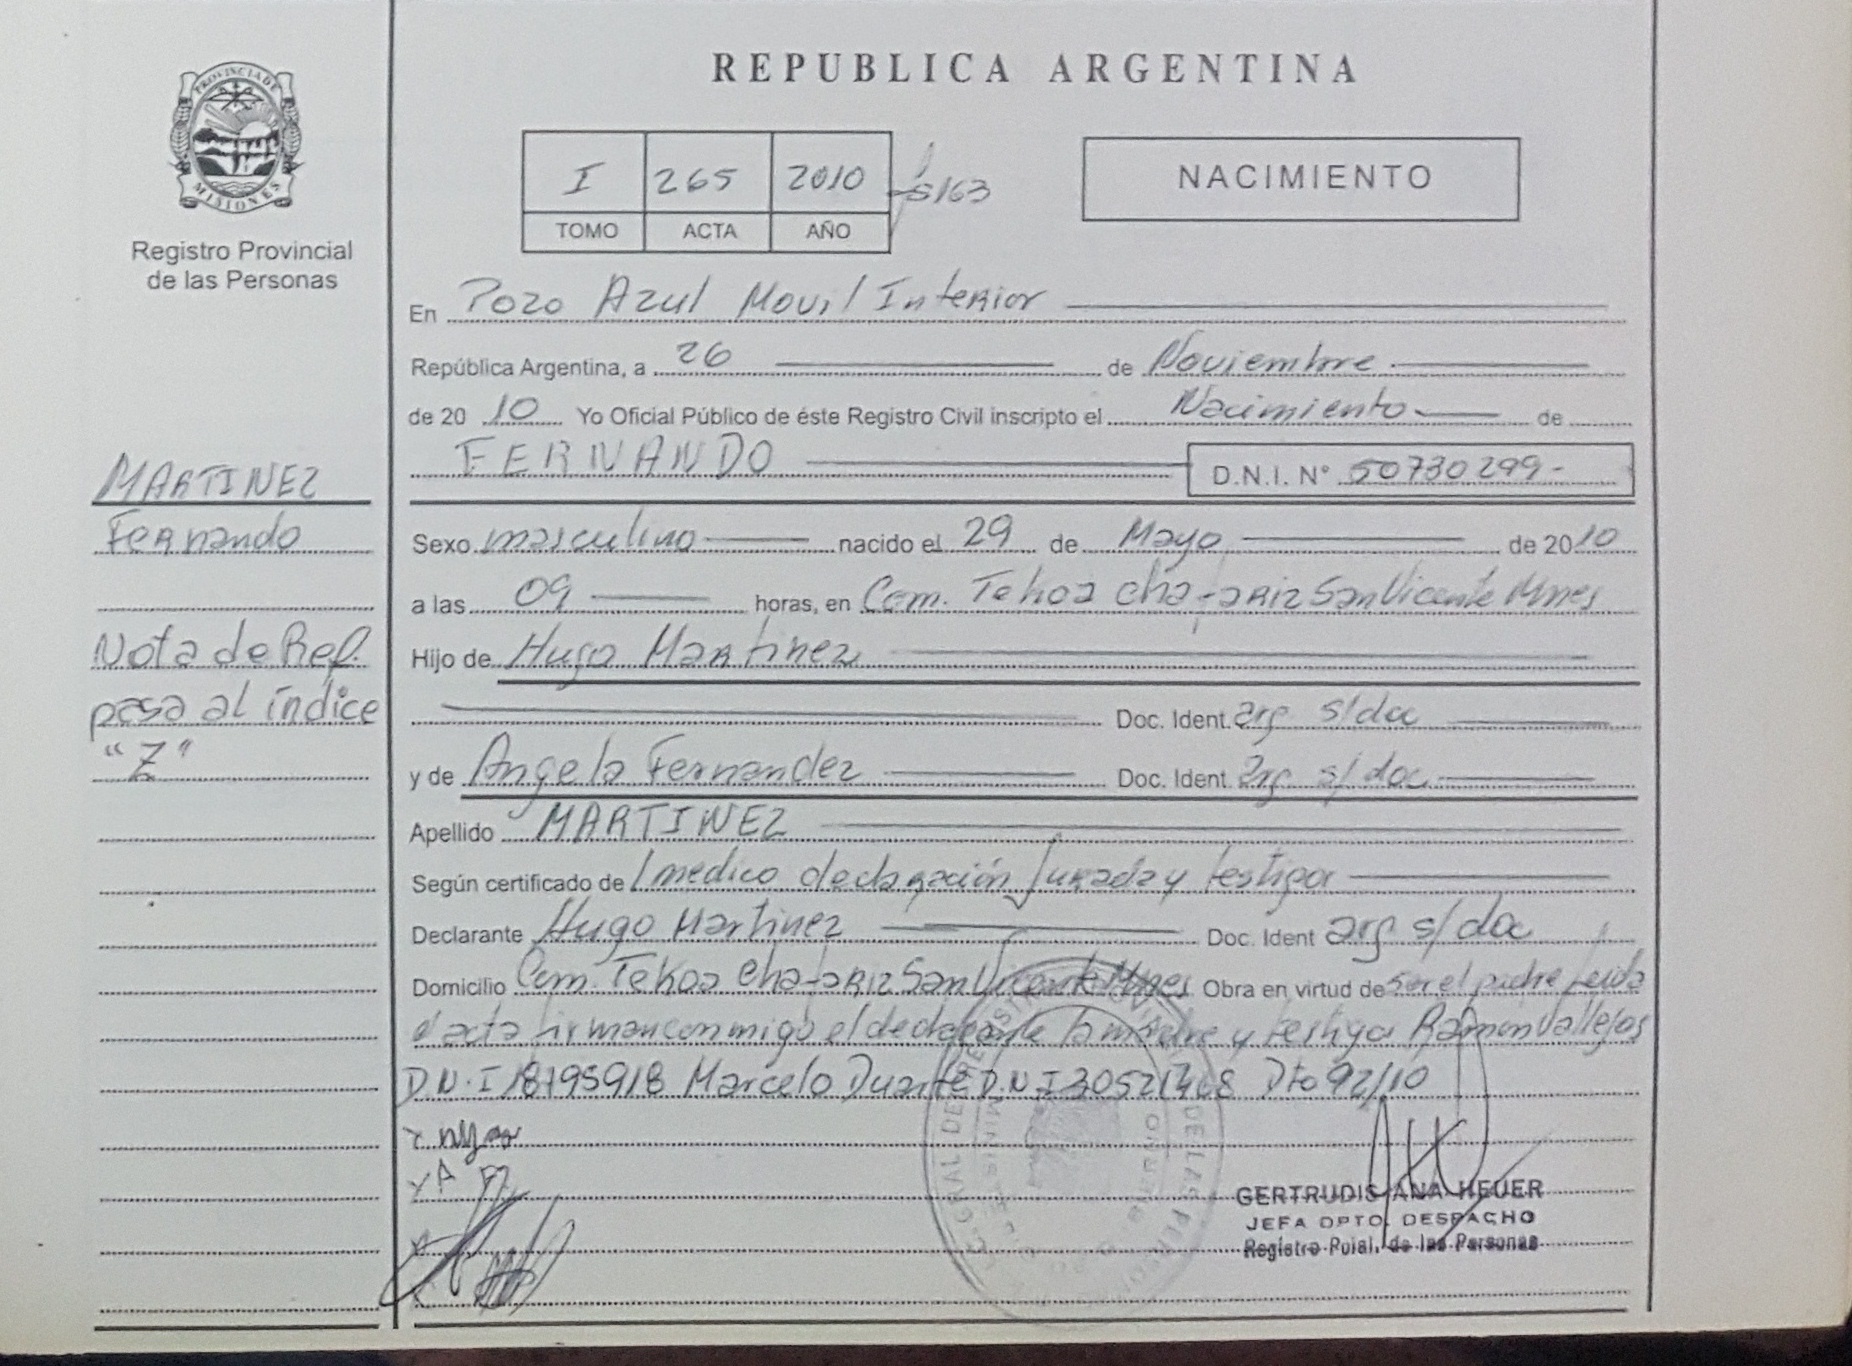 REPUBLICA ARGENTINA
PROVINCIA DE MISIONES
Registro Provincial
de las Personas
I 265 2010
TOMO ACTA AÑO
NACIMIENTO
En Pozo Azul Movil Interior
República Argentina, a 26 de Noviembre
de 2010 Yo Oficial Público de éste Registro Civil inscripto el Nacimiento de
FERNANDO D.N.I. N° 50730299-
MARTINEZ
Fernando
Nota de Ref.
pasa al índice
"Z"
Sexo masculino nacido el 29 de Mayo de 2010
a las 09 horas, en Com. Tekoa Chafariz San Vicente Mnes
Hijo de Hugo Martinez
Doc. Ident. arg s/doc
y de Angela Fernandez Doc. Ident arg s/doc
Apellido MARTINEZ
Según certificado de / medico declaración Jurada y testigos
Declarante Hugo Martinez Doc. Ident arg s/doc
Domicilio Com. Tekoa Chafariz San Vicente Mnes Obra en virtud de ser el padre Leida
el acta firman conmigo el declarante la madre y testigos Ramon Vallejos
D.N.I 18795918 Marcelo Duarte D.N.I 30521468 Dto 92/10
GERTRUDIS ANA HEUER
JEFA DPTO. DESPACHO
Registro Pcial. de las Personas